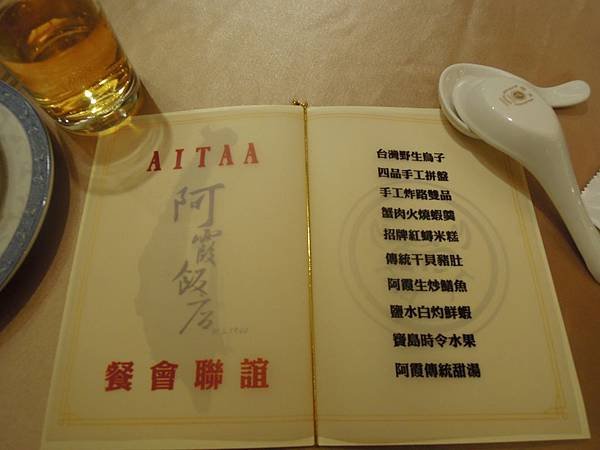 AITAA
阿霞飯店
餐會聯誼
台灣野生烏子
四品手工拼盤
手工炸路雙品
蟹肉火燒蝦羹
招牌紅蟳米糕
傳統干貝豬肚
阿霞生炒鱔魚
鹽水白灼鮮蝦
寶島時令水果
阿霞傳統甜湯